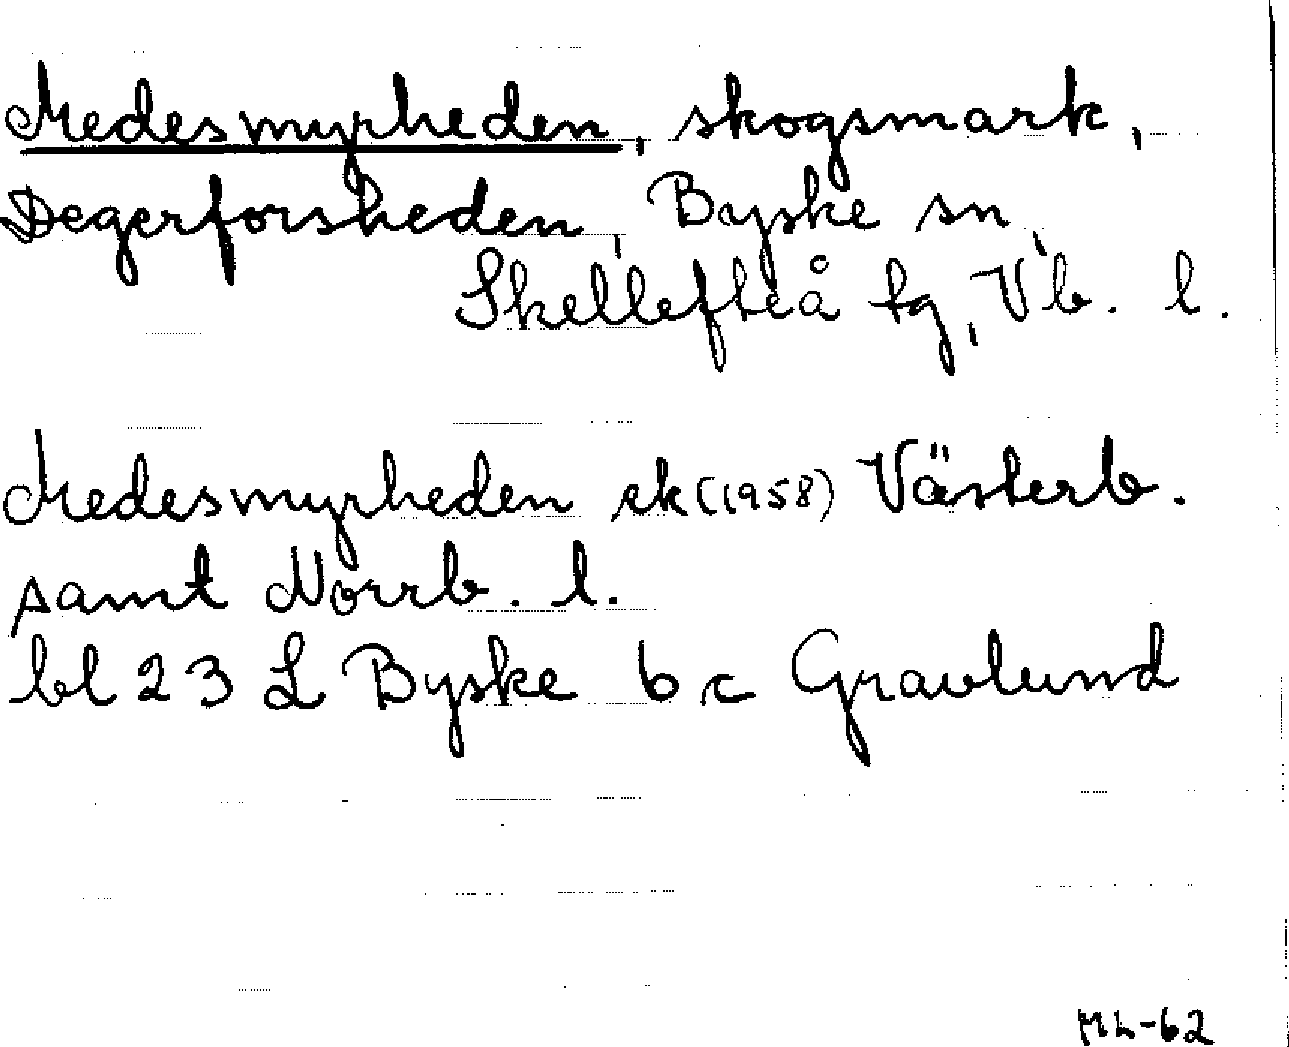 Medesmyrheden, skogsmark,
Degerforsheden, Byske sn,
Skellefteå tg, Vb. l.
Medesmyrheden ek (1958) Västerb.
samt Norrb. l.
bl 23 L Byske b c Gravlund
ML-62